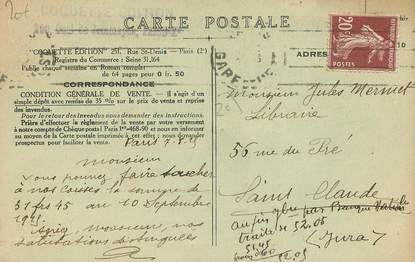 CARTE POSTALE
"COQUETTE EDITION" 251, Rue St-Denis - Paris (2e)
Registre du Commerce : Seine 31,164
Publie chaque semaine un Roman complet
de 64 pages pour 0 fr. 50
CORRESPONDANCE
CONDITION GÉNÉRALE DE VENTE. - Il s'agit d'un
simple dépôt avec remise de 35 % sur le prix de vente et reprise
des invendus.
Pour le retour des invendus nous demander des instructions.
Prière d'effectuer le règlement de la vente par votre versement
à notre compte de Chèque postal Paris 1er-468-90 et nous en informer
au moyen de la Carte postale imprimée à cet effet; nous demander
prospectus pour faciliter la vente.
Paris
Monsieur
Vous pouvez faire toucher
à nos Caisses la somme de
51 frs 45 au 10 Septembre
Agréez, Monsieur, nos
salutations distinguées
20c
ADRES
GARE
Monsieur Jules Mermet
Libraire
56 rue du Pré
Saint Claude
(Jura)
traite de 52.05
51.45